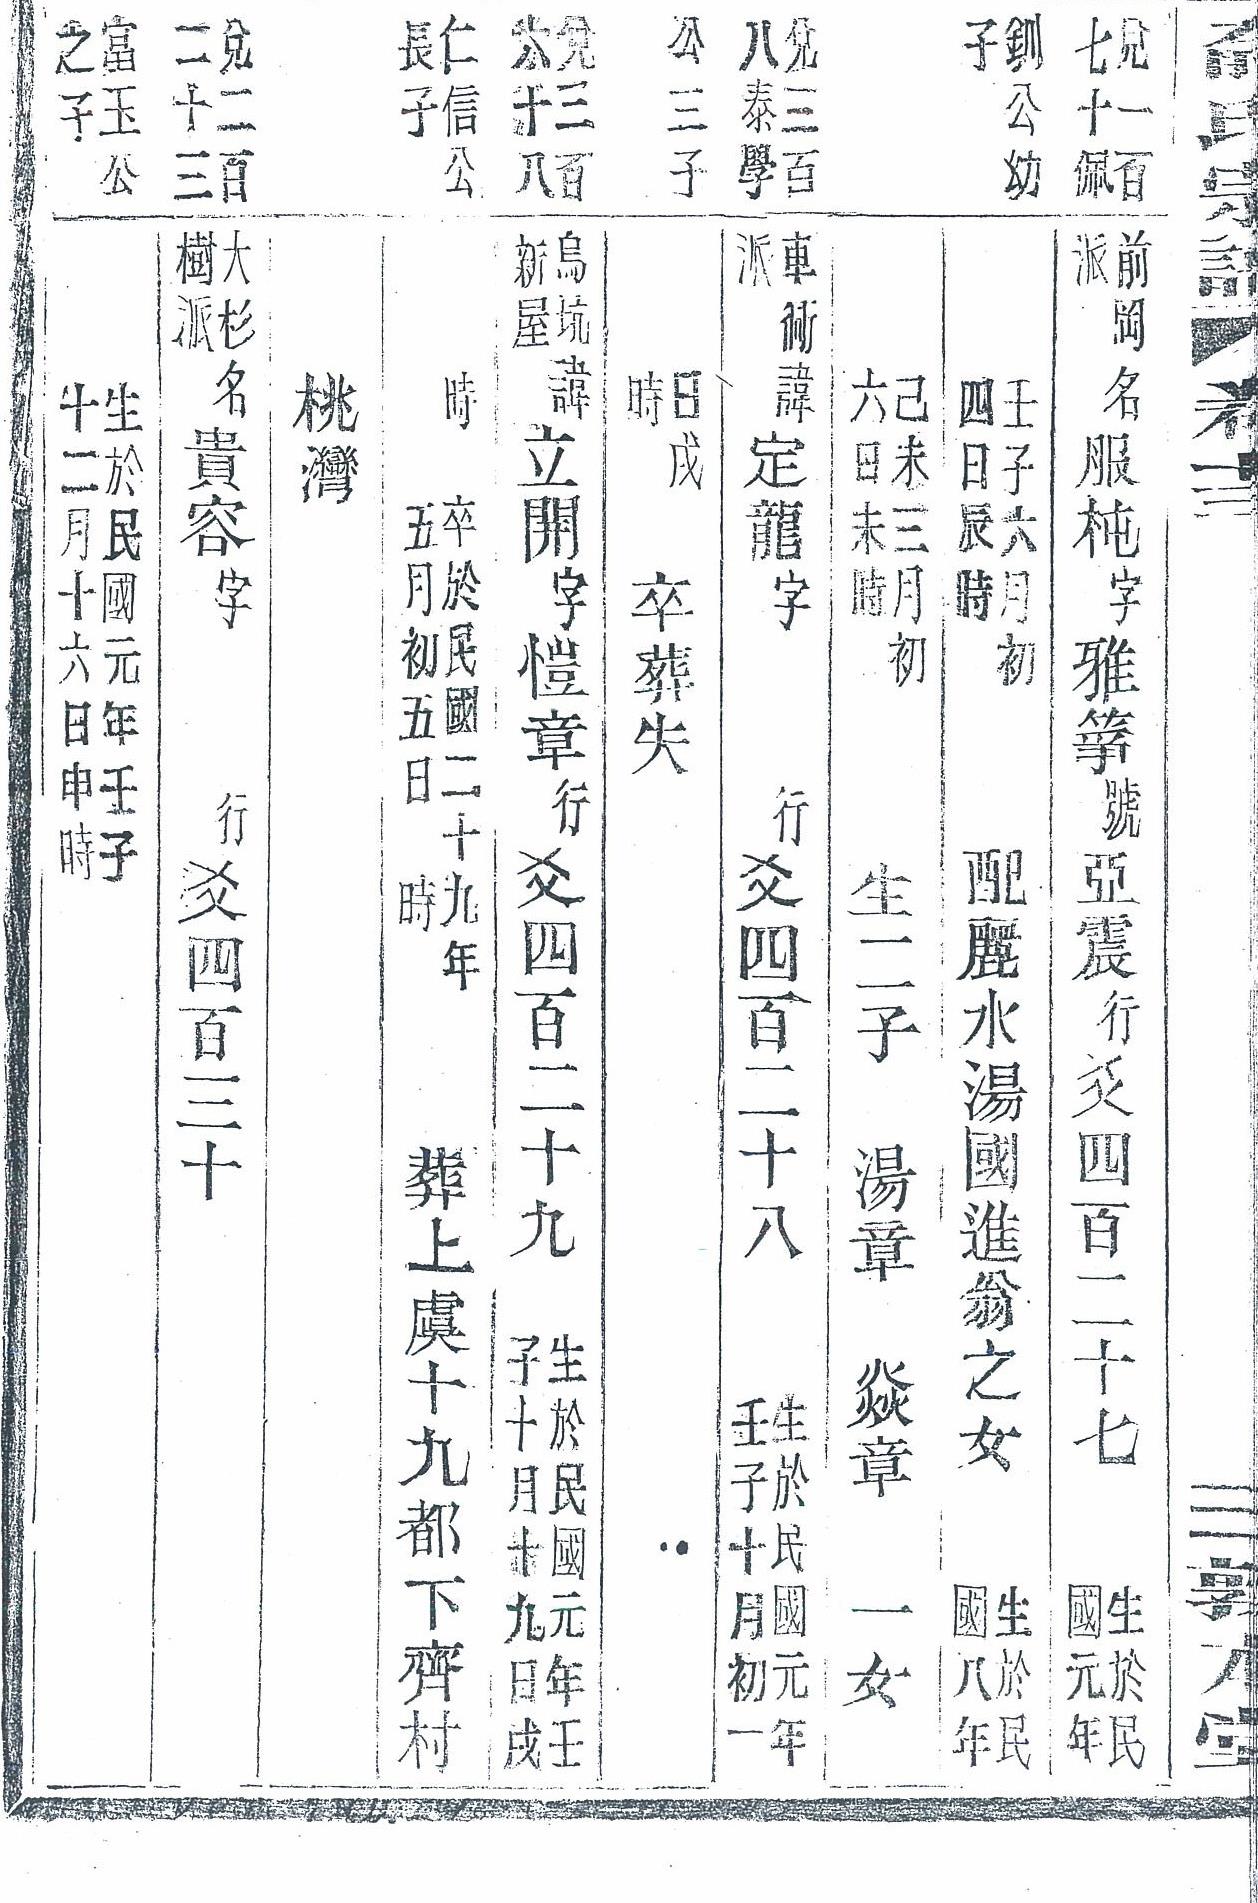 氏宗譜 卷三 三 敦本堂
兌一百七十佩釧公幼子
前岡派 名服杶字雅箏號亞震行爻四百二十七 生於民國元年
壬子六月初四日辰時 配麗水湯國進翁之女 生於民國八年
己未三月初六日未時 生二子 湯章 焱章 一女
兌三百八泰學公三子
車衕派 諱定龍字 行爻四百二十八 生於民國元年壬子十月初一
日戌時 卒葬失
兌三百六十八仁信公長子
烏坑新屋 諱立開字愷章行爻四百二十九 生於民國元年壬子十月十九日戌
時 卒於民國二十九年五月初五日時 葬上虞十九都下齊村
桃灣
兌二百二十三富玉公之子
大杉樹派 名貴容字 行爻四百三十
生於民國元年壬子十二月十六日申時